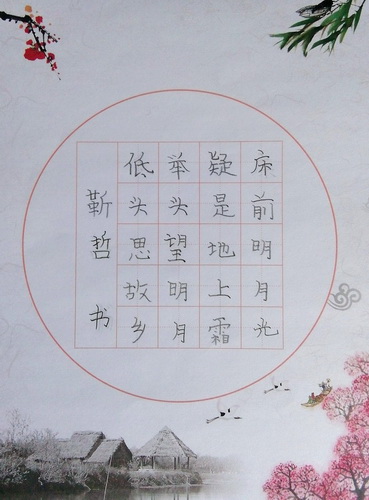 床前明月光
疑是地上霜
举头望明月
低头思故乡
靳哲书